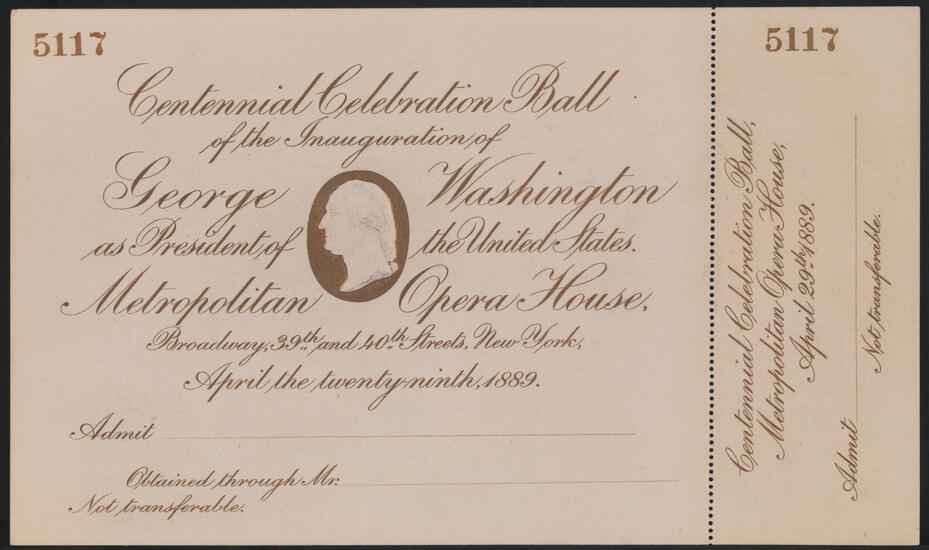 5117
Centennial Celebration Ball
of the Inauguration of
George Washington
as President of the United States.
Metropolitan Opera House,
Broadway, 39th and 40th Streets, New York,
April the twenty-ninth, 1889.
Admit
Obtained through Mr.
Not transferable.
5117
Centennial Celebration Ball,
Metropolitan Opera House,
April 29th 1889.
Admit
Not transferable.